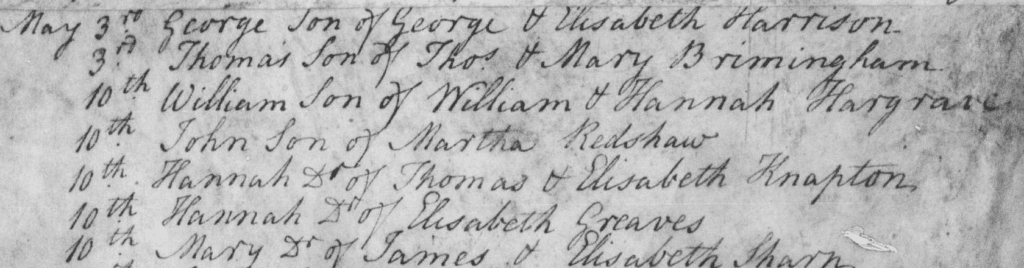 May 3rd George Son of George & Elisabeth Harrison
3rd Thomas Son of Thos & Mary Brimingham
10th William Son of William & Hannah Hargrave
10th John Son of Martha Redshaw
10th Hannah Dr of Thomas & Elisabeth Knapton
10th Hannah Dr of Elisabeth Greaves
10th Mary Dr of James & Elisabeth Sharp